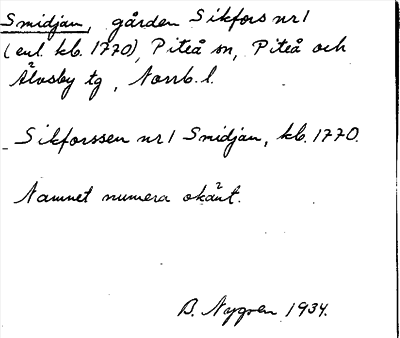 Smidjan, gården Sikfors nr 1
(enl. kb. 1770), Piteå sn, Piteå och
Älvsby tg, Norrb. l.
Sikforssen nr 1 Smidjan, kb. 1770.
Namnet numera okänt.
B. Nygren 1934.